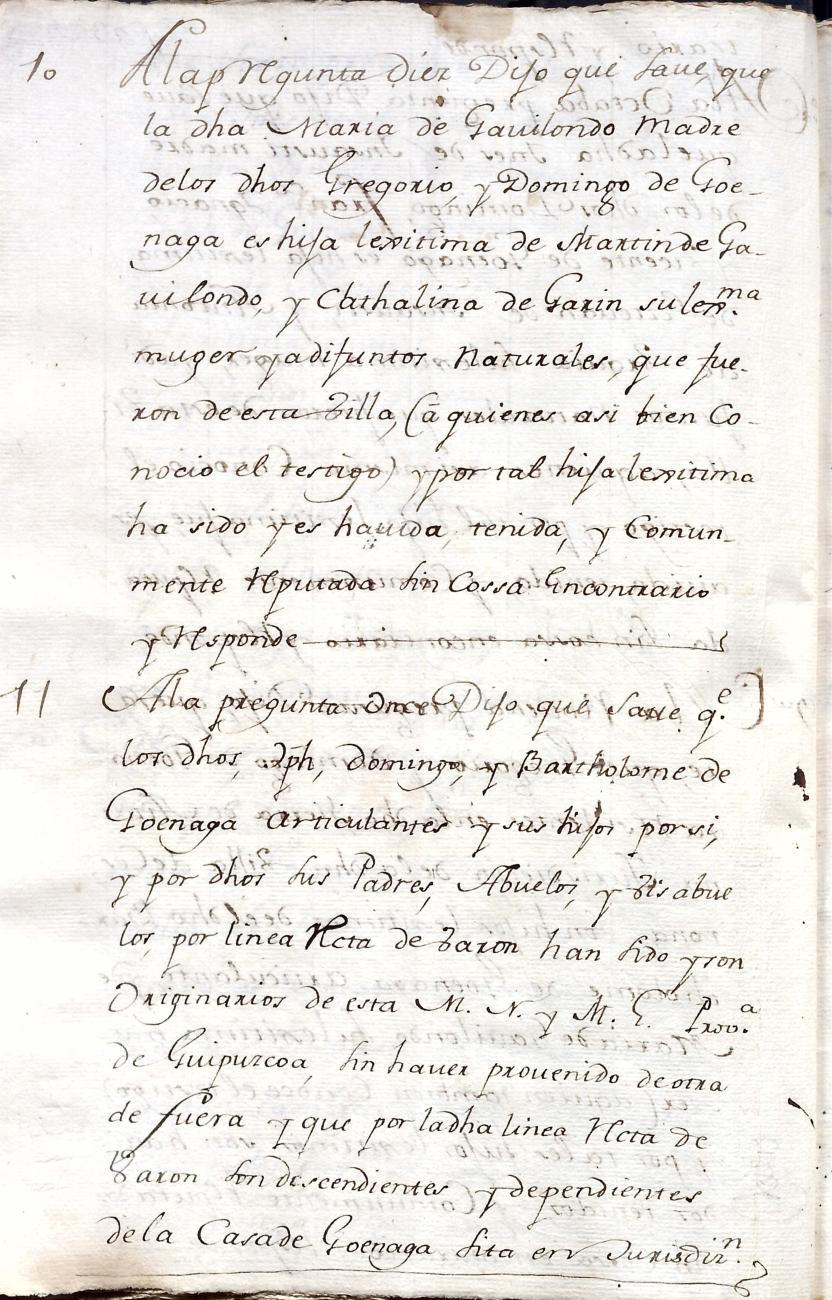 10 A la pregunta diez Dijo que save, que
la dha Maria de Gavilondo Madre
delos dhos Gregorio, y Domingo de Goe-
naga es hija lexitima de Martin de Ga-
vilondo, y Cathalina de Garin su lex.ma
muger ya difuntos Naturales, que fue-
ron de esta Billa, (a quienes asi bien Co-
nocio el testigo) y por tal hija lexitima
ha sido y es havida, tenida, y Comun-
mente Reputada sin Cossa Encontrario
y Responde
11 A la pregunta Once Dijo que Save q.e
los dhos, Jph, Domingo, y Bartholome de
Goenaga articulantes y sus hijos por si,
y por dhos sus Padres, Abuelos, y Bisabue
los, por linea Recta de Baron han sido y son
Originarios de esta M. N. y M. L. Prov.a
de Guipuzcoa, sin haver provenido de otra
de fuera y que por la dha linea Recta de
Baron son descendientes y dependientes
dela Casa de Goenaga sita en Jurisdiz.n